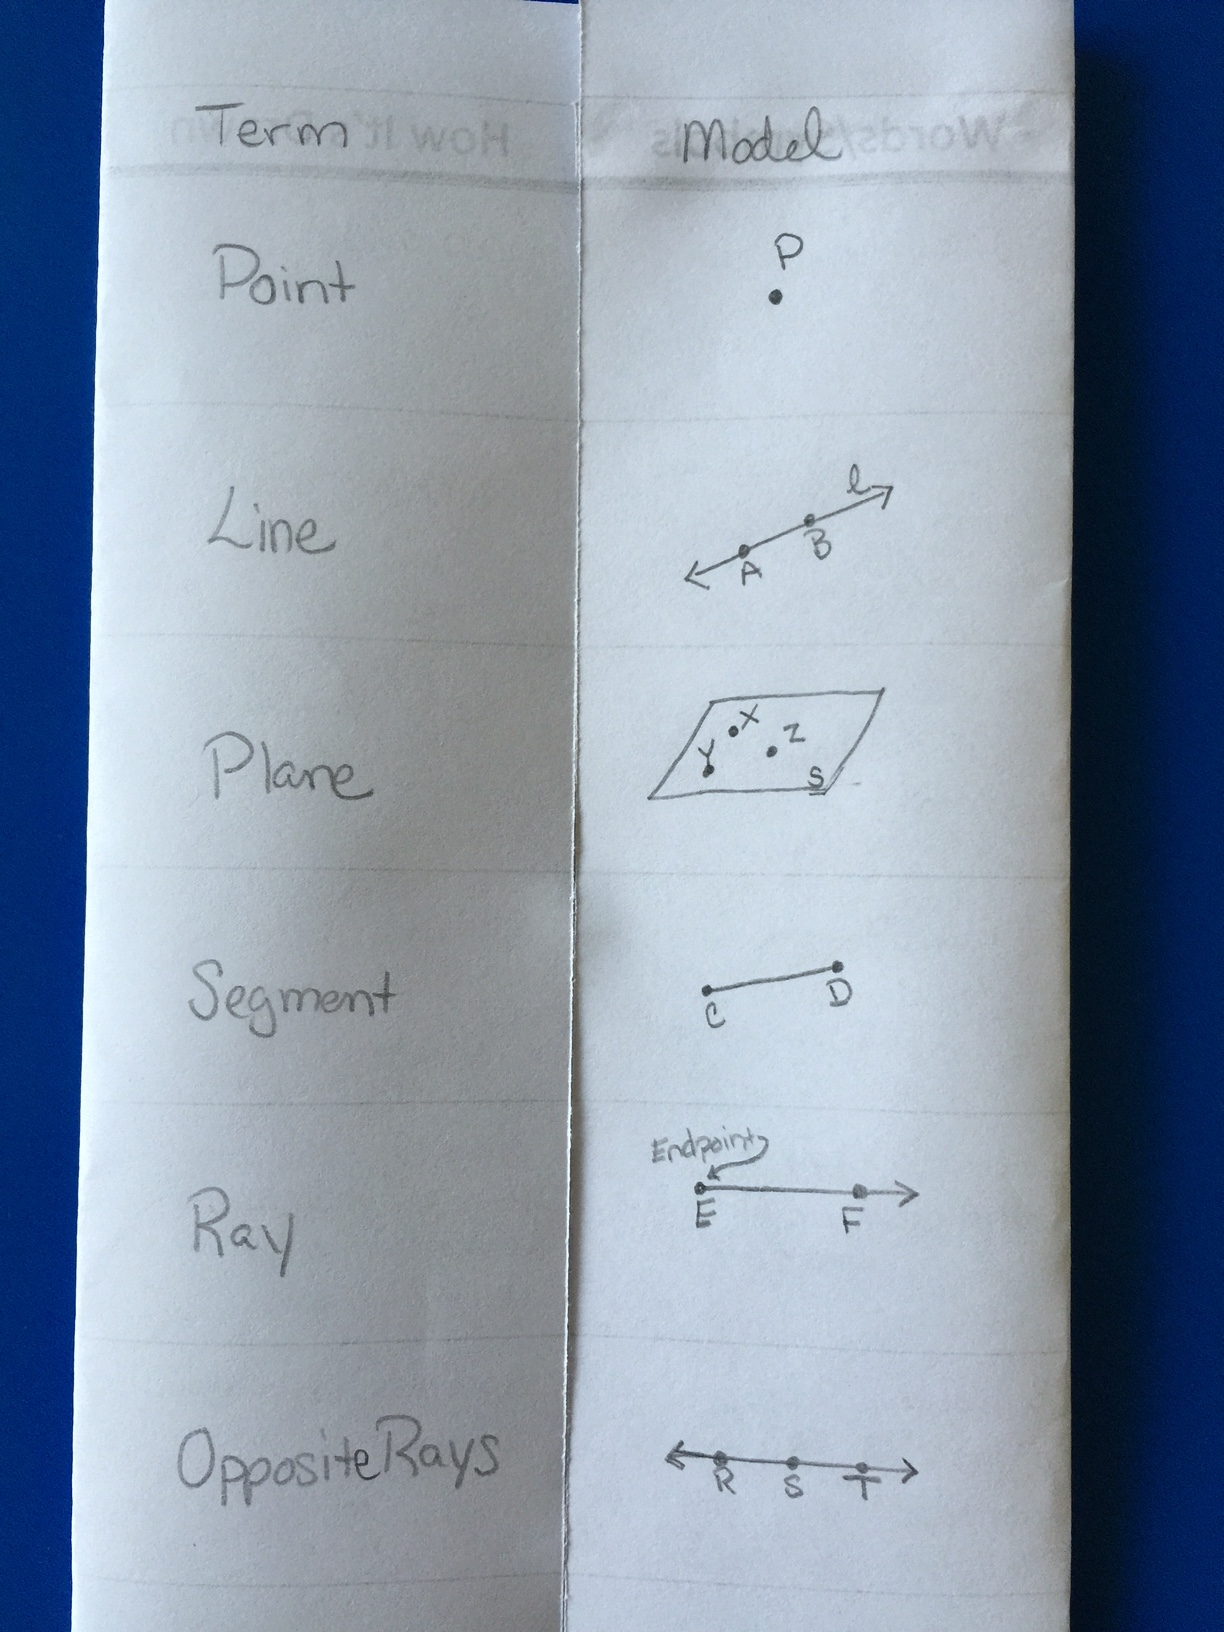 Term Model
Point
P
Line
l
A B
Plane
X
Y Z
S
Segment
C D
Endpoint
Ray
E F
Opposite Rays
R S T